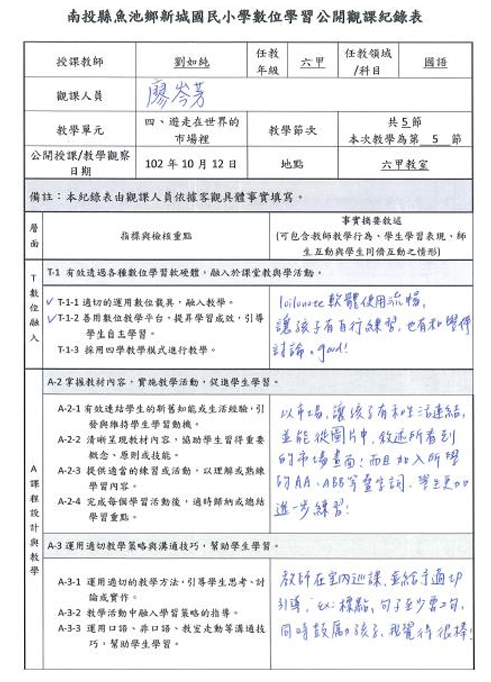 南投縣魚池鄉新城國民小學數位學習公開觀課紀錄表
授課教師 劉如純 任教年級 六甲 任教領域/科目 國語
觀課人員 廖岑芳
教學單元 四、遊走在世界的市場裡 教學節次 共 5 節 本次教學為第 5 節
公開授課/教學觀察日期 102 年 10 月 12 日 地點 六甲教室
備註：本紀錄表由觀課人員依據客觀具體事實填寫。
層面 指標與檢核重點 事實摘要敘述
(可包含教師教學行為、學生學習表現、師生互動與學生同儕互動之情形)
T 數位融入
T-1 有效透過各種數位學習軟硬體，融入於課堂教與學活動。
✓T-1-1 適切的運用數位載具，融入教學。
✓T-1-2 善用數位教學平台，提昇學習成效，引導
學生自主學習。
T-1-3 採用四學教學模式進行教學。
loilonote軟體使用流暢，
讓孩子有自行練習，也有和學伴
討論。good!
A 課程設計與教學
A-2 掌握教材內容，實施教學活動，促進學生學習。
A-2-1 有效連結學生的新舊知能或生活經驗，引
發與維持學生學習動機。
A-2-2 清晰呈現教材內容，協助學生習得重要
概念、原則或技能。
A-2-3 提供適當的練習或活動，以理解或熟練
學習內容。
A-2-4 完成每個學習活動後，適時歸納或總結
學習重點。
以市場，讓孩子有和生活連結，
並能從圖片中，敘述所看到
的市場畫面！而且加入所學
的AA、ABB等疊字詞，學生更加
進步練習！
A-3 運用適切教學策略與溝通技巧，幫助學生學習。
A-3-1 運用適切的教學方法，引導學生思考、討
論或實作。
A-3-2 教學活動中融入學習策略的指導。
A-3-3 運用口語、非口語、教室走動等溝通技
巧，幫助學生學習。
教師在室內巡課，並給予適切
引導，ex:標點，句子至少要2句，
同時鼓勵孩子，我覺得很棒！